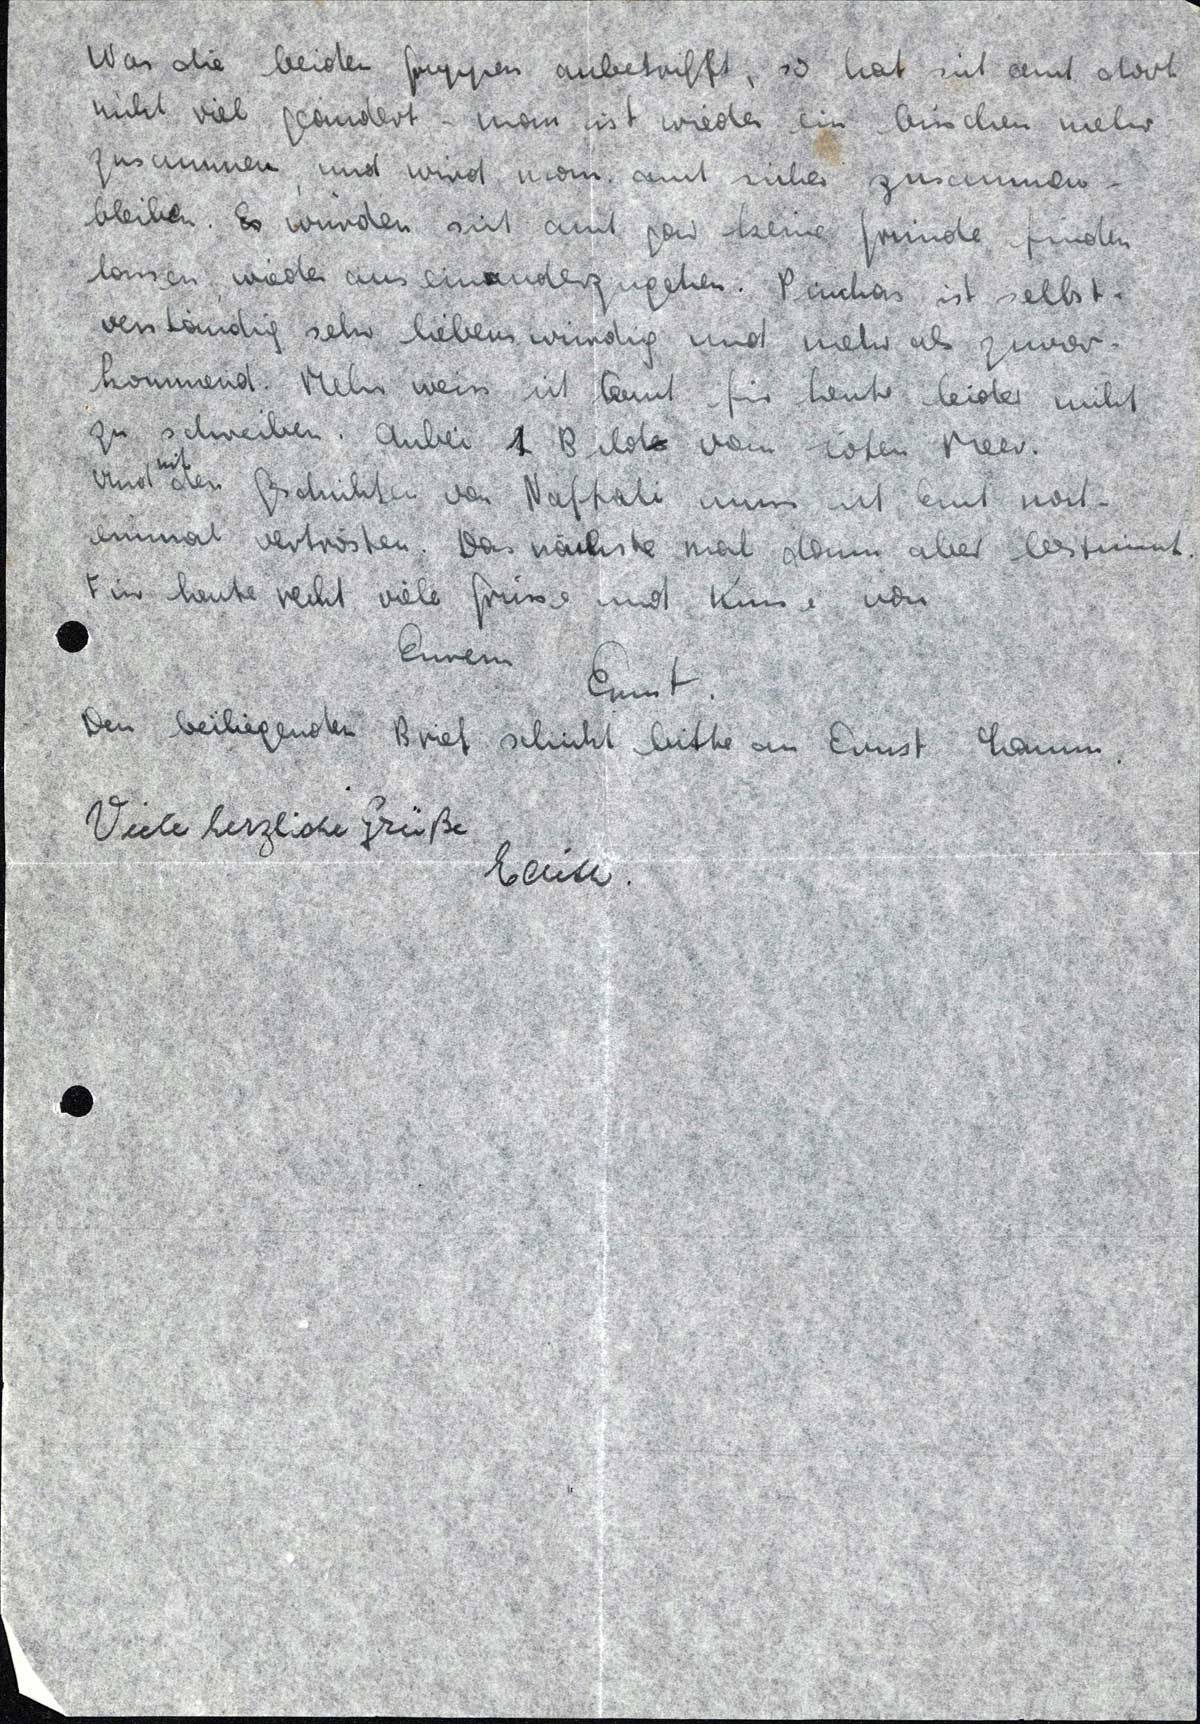 Was die beiden Gruppen anbetrifft, so hat sich auch dort
nicht viel geändert - man ist wieder ein bisschen mehr
zusammen, und wird nom. auch sicher zusammen-
bleiben. Es würden sich auch gar keine Gründe finden
lassen, wieder auseinanderzugehen. Pinchas ist selbst-
verständig sehr liebenswürdig und mehr als zuvor-
kommend. Mehr weiss ich Euch für heute leider nicht
zu schreiben. Anbei 1 Bild vom roten Meer.
Und mit den Geschichten von Naftali muss ich Euch noch-
einmal vertrösten. Das nächste mal dann aber bestimmt.
Für heute recht viele Grüsse und Küsse von
Eurem
Ernst.
Den beiliegenden Brief schickt bitte an Ernst
Viele herzliche Grüße
Edith.